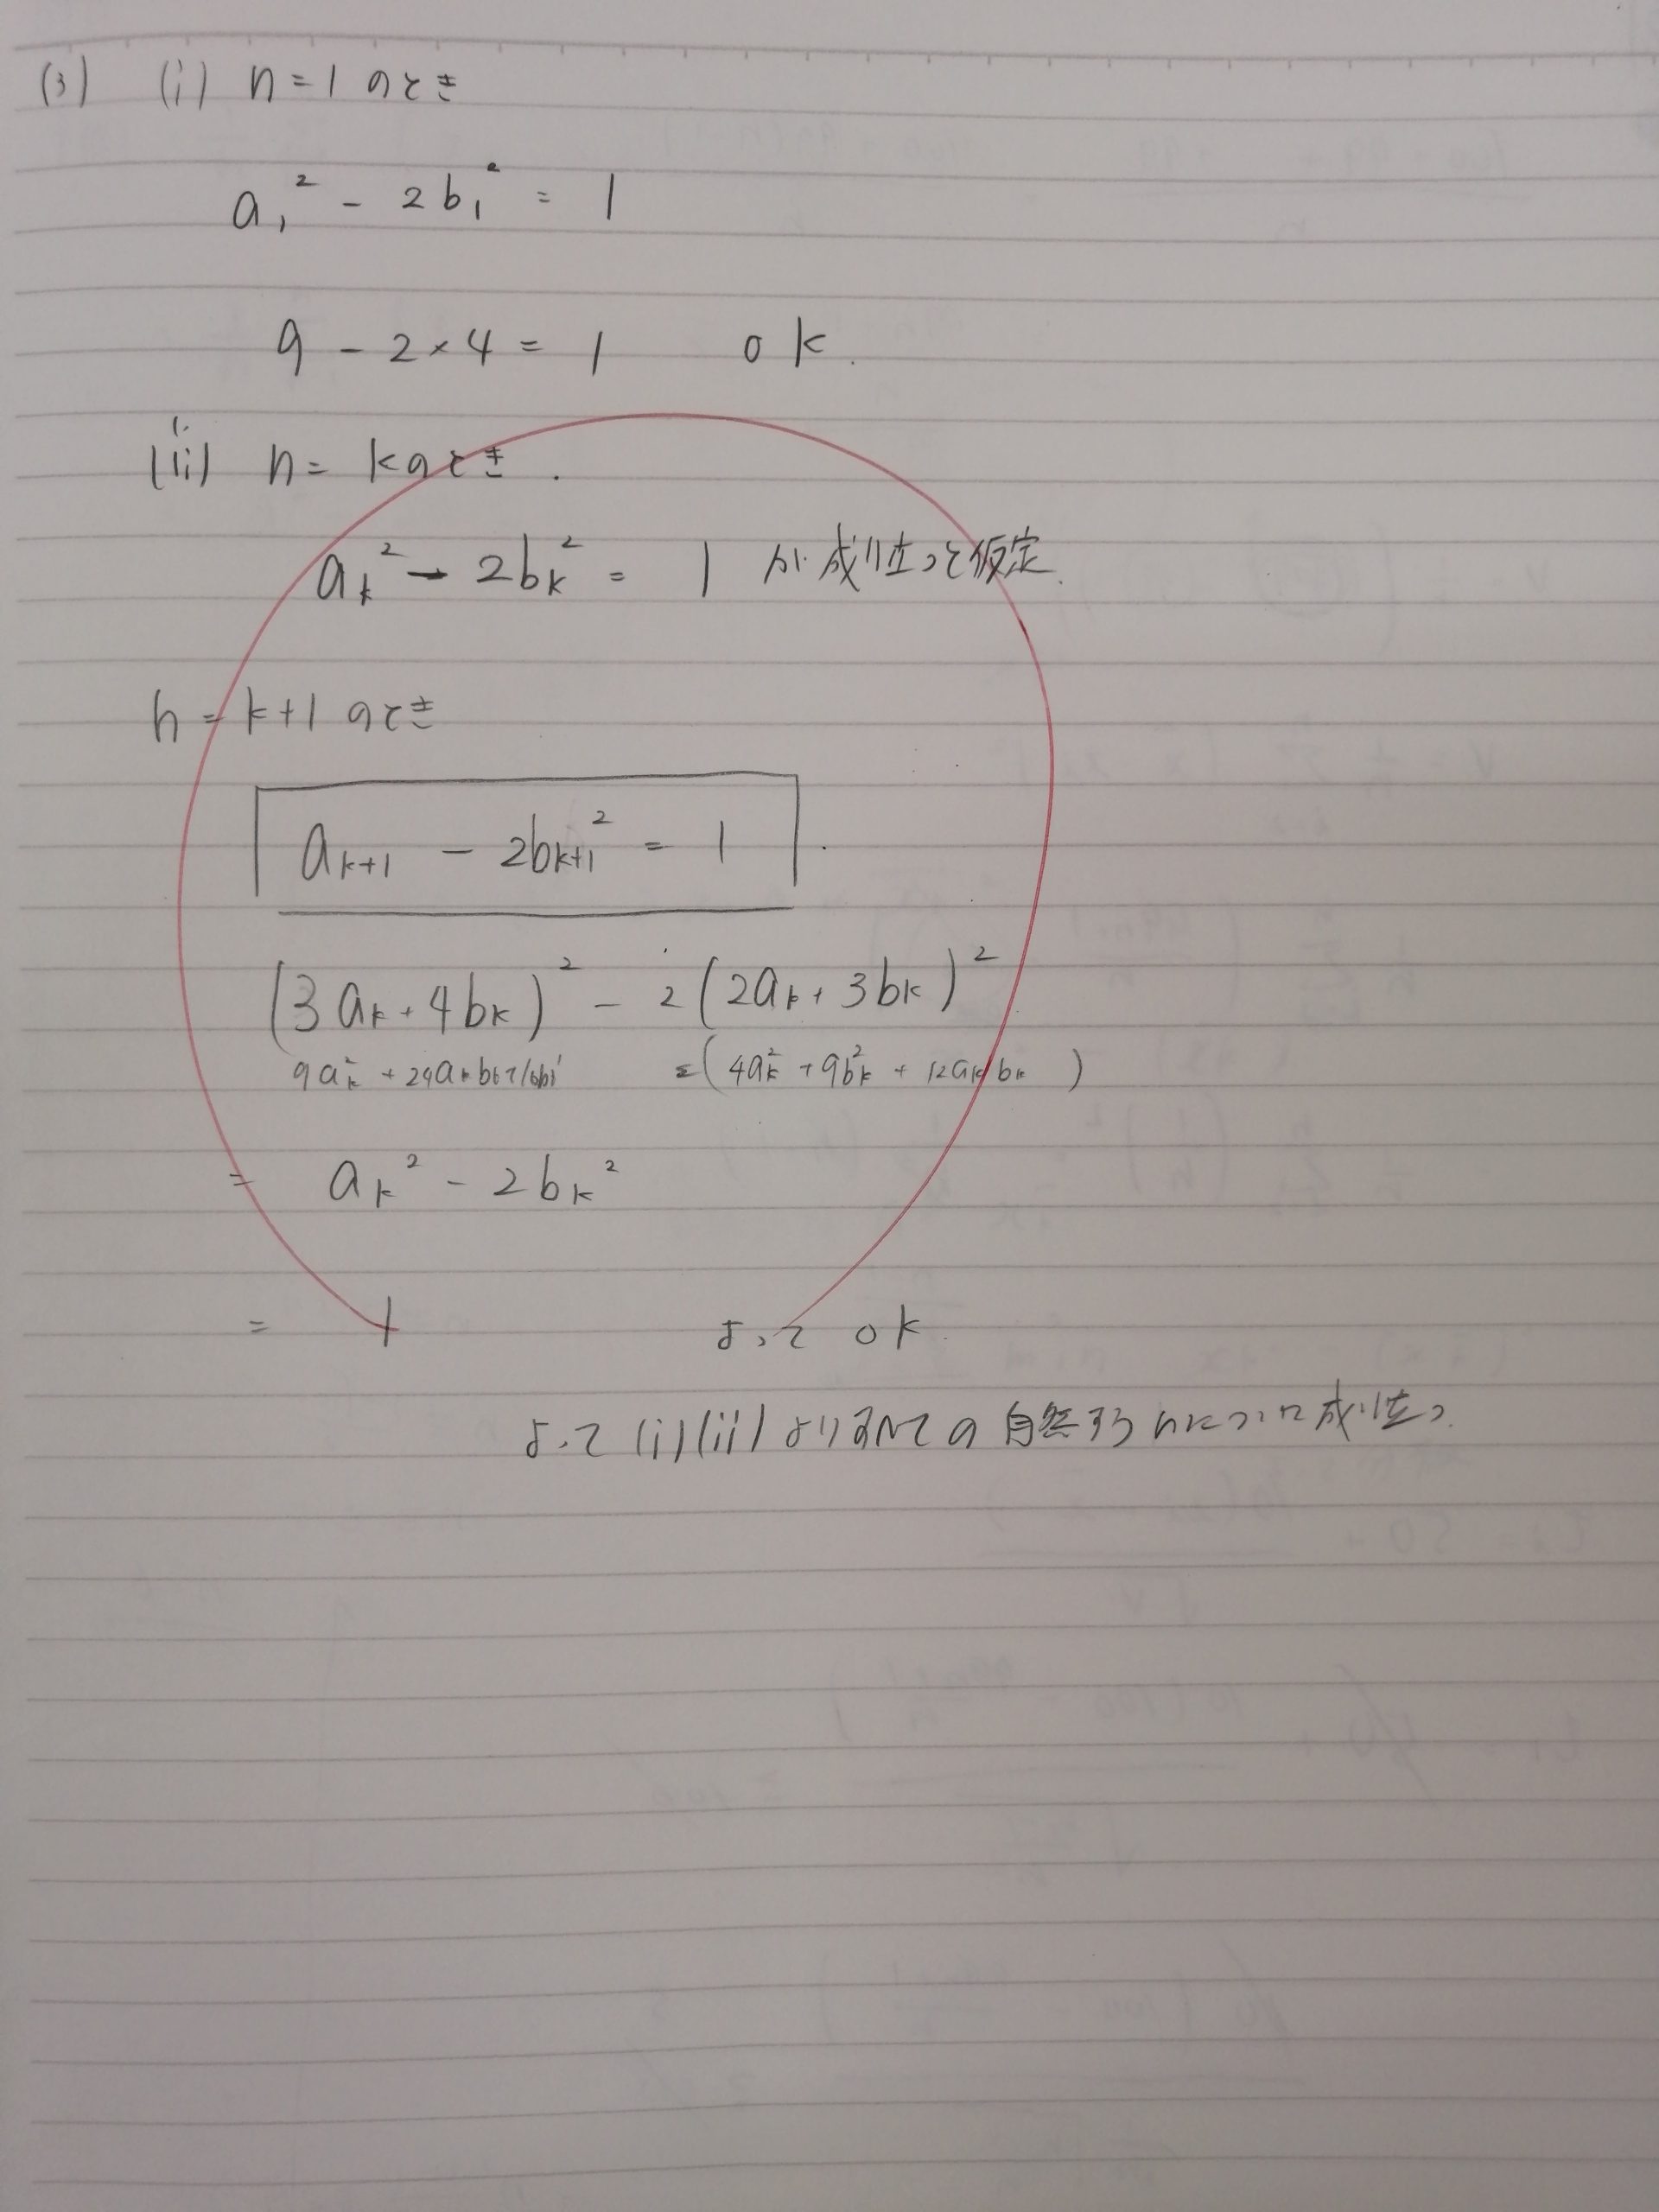 (3) (i) n=1のとき
a₁² - 2b₁² = 1
9 - 2×4 = 1 ok.
(ii) n= kのとき.
aₖ² - 2bₖ² = 1 が成り立つと仮定.
n=k+1のとき
aₖ₊₁ - 2bₖ₊₁² = 1
(3aₖ+4bₖ)² - 2(2aₖ+3bₖ)²
9aₖ² + 24aₖbₖ+16 (4aₖ²+9bₖ² + 12aₖbₖ)
= aₖ² - 2bₖ²
= 1 よって ok
よって(i)(ii)よりすべての自然するnについて成り立つ.